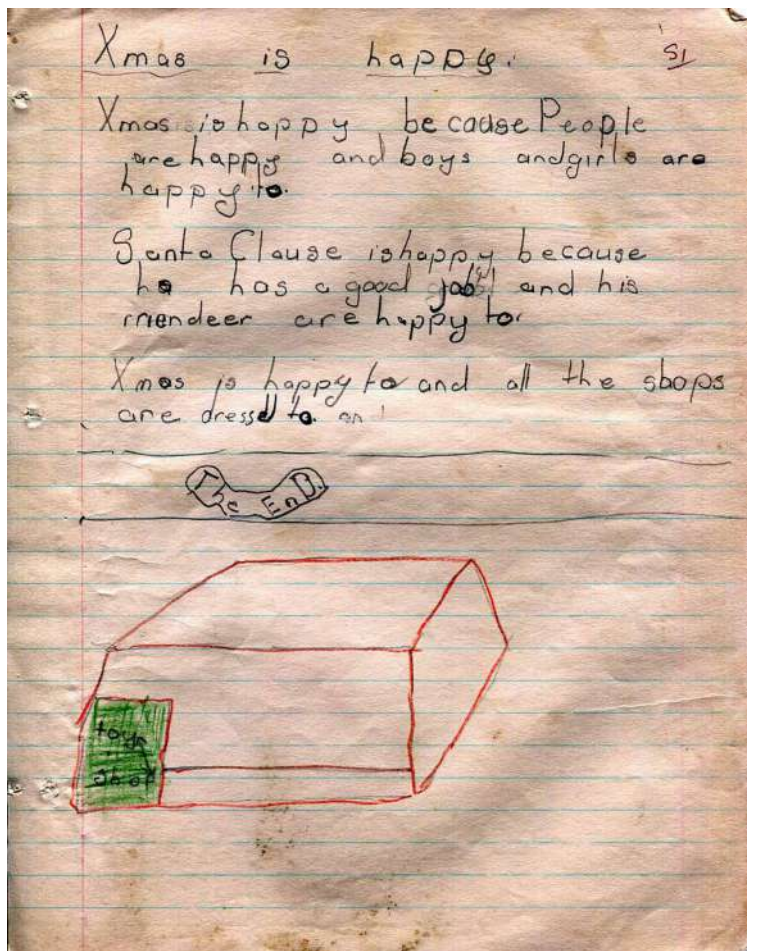 Xmas is happy. 51
Xmas is happy because People
are happy and boys and girls are
happy to.
Santa Clause is happy because
he has a good job and his
riendeer are happy to.
Xmas is happy to and all the shops
are dressd to. an
The EnD.
toys
shop